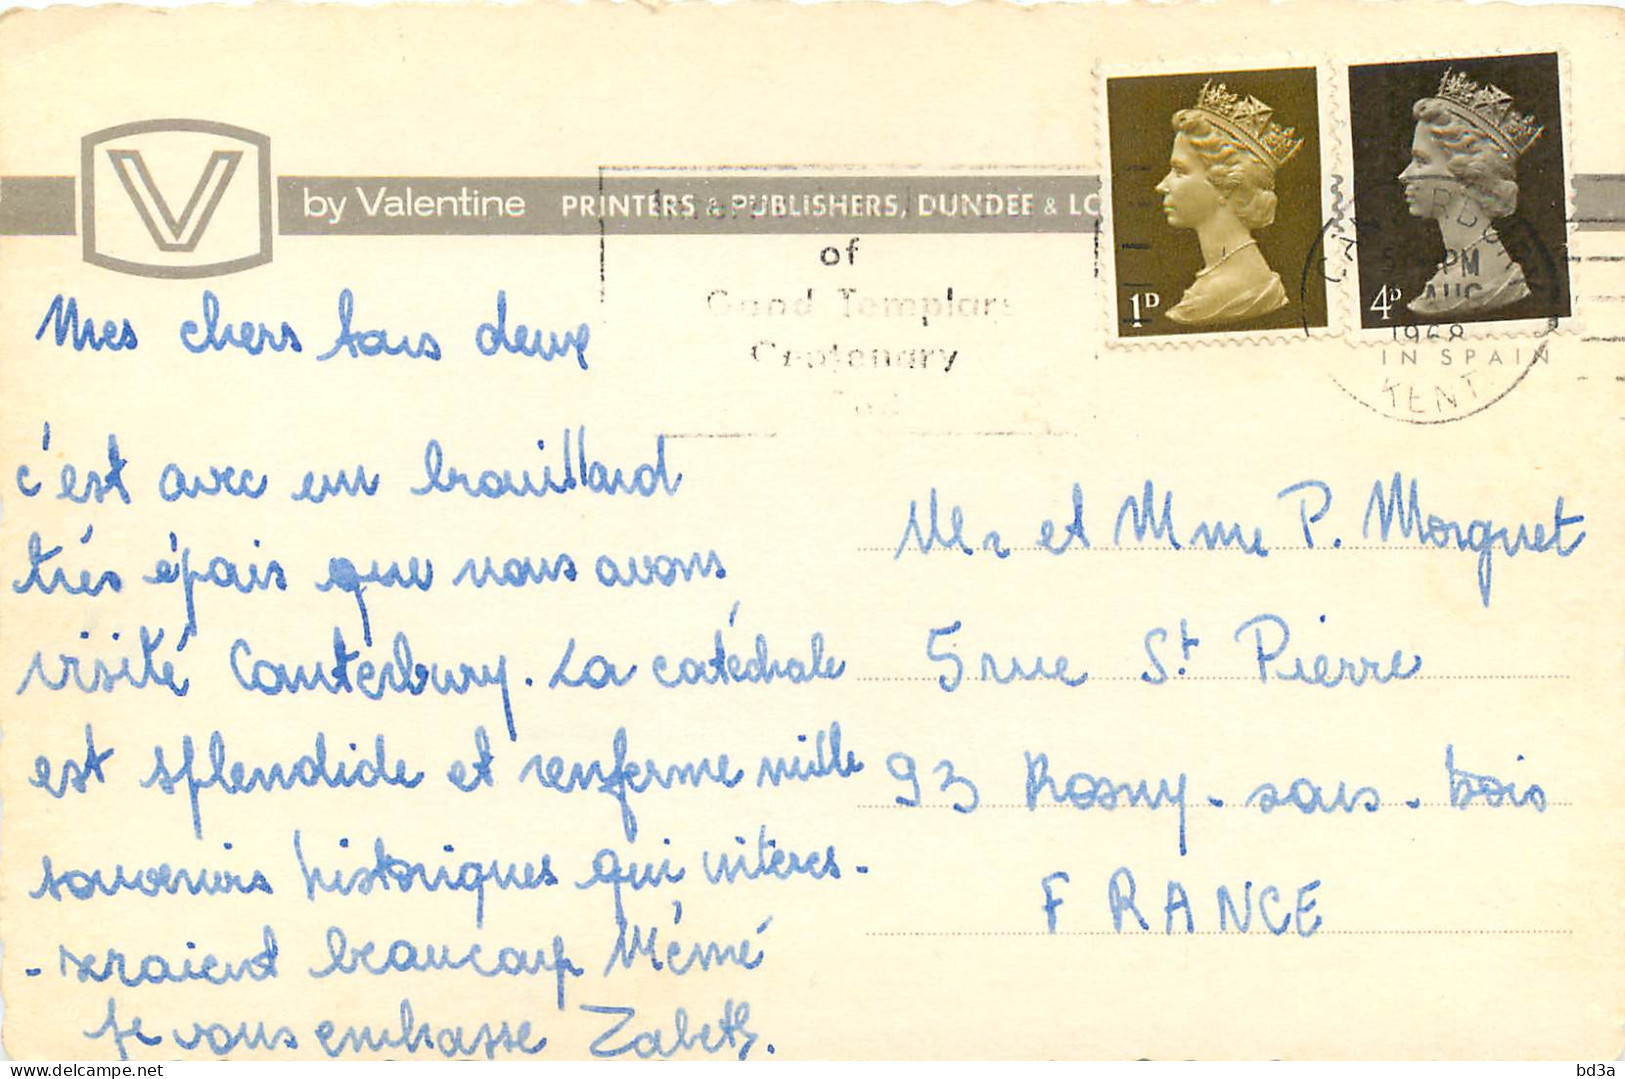 V by Valentine PRINTERS & PUBLISHERS, DUNDEE & LO
of
Good Templars
Centenary
1D
4D
PM
AUG
1968
IN SPAIN
KENT
Mes chers tous deux
c'est avec un brouillard
très épais que nous avons
visité Canterbury. La catédhale
est splendide et renferme mille
souvenirs historiques qui intéres-
-seraient beaucoup Mémé
Je vous embrasse Zabeth.
Mr et Mme P. Morguet
5 rue St Pierre
93 Rosny-sous-bois
FRANCE
bd3a